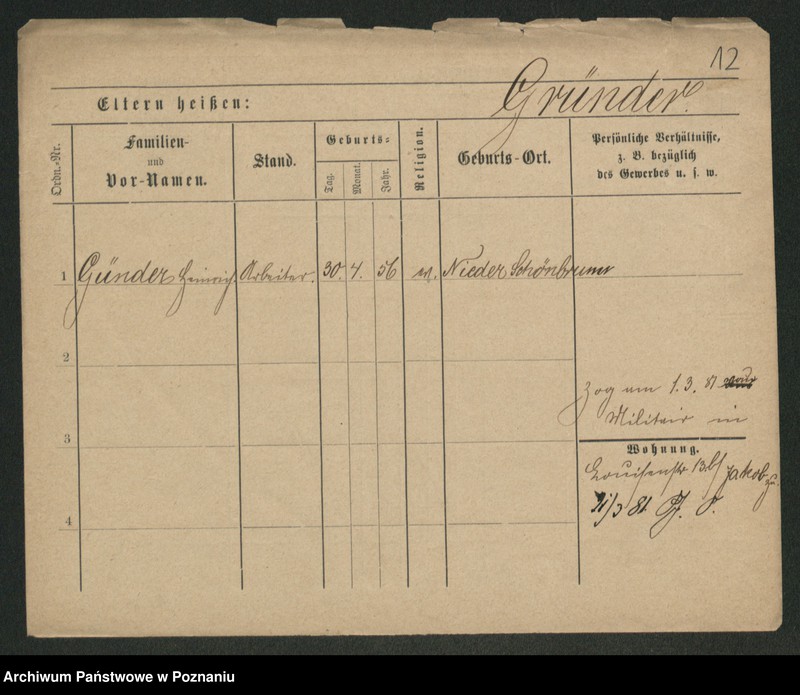 12
Gründer.
Eltern heißen:
Ordn.-Nr.
Familien-
und
Vor-Namen.
Stand.
Geburts-
Tag.
Monat.
Jahr.
Religion.
Geburts-Ort.
Persönliche Verhältnisse,
z. B. bezüglich
des Gewerbes u. s. w.
1 Günder Heinrich Arbeiter. 30. 4. 56 Nieder Schönbrunn
2
zog am 1. 3. 81
Militair in
3
Wohnung.
Louisenstr 13. bf Jakob
4
81
Archiwum Państwowe w Poznaniu